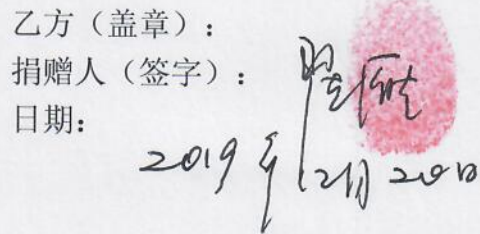 乙方（盖章）：
捐赠人（签字）：
日期：
2019年12月20日